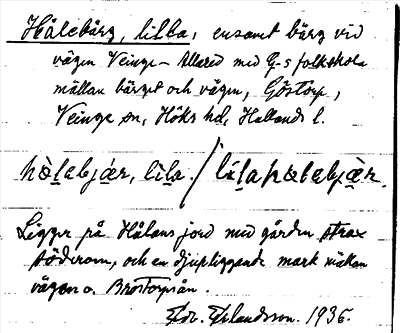 Hålebärg, lilla, ensamt bärg vid
vägen Veinge - Allared med G-s folkskola
mällan bärget och vägen, Göstorp,
Veinge sn, Höks hd, Hallands l.
Ligger på Hålans jord med gården strax
söderom, och en djupliggande mark mällan
vägen o. Brostorpsån.
1936.